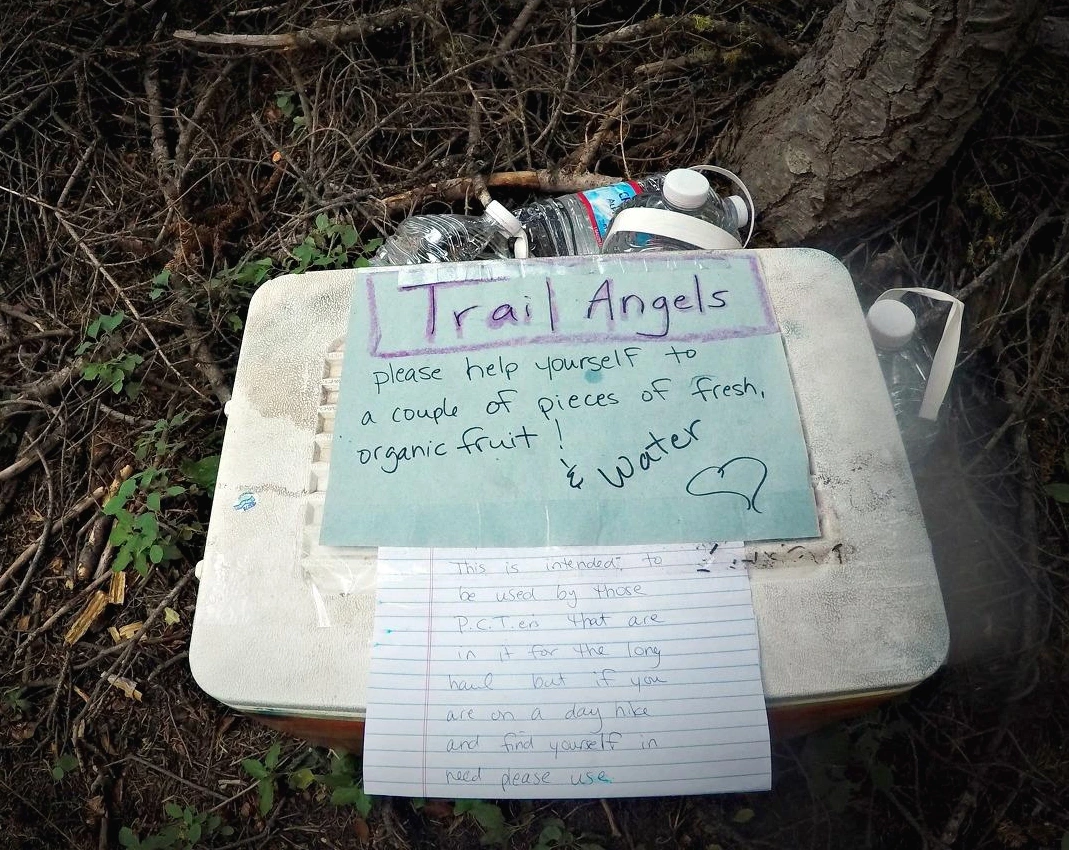 Trail Angels
please help yourself to
a couple of pieces of fresh,
organic fruit!
& Water
This is intended, to
be used by those
P.C.T.ers that are
in it for the long
haul but if you
are on a day hike
and find yourself in
need please use.